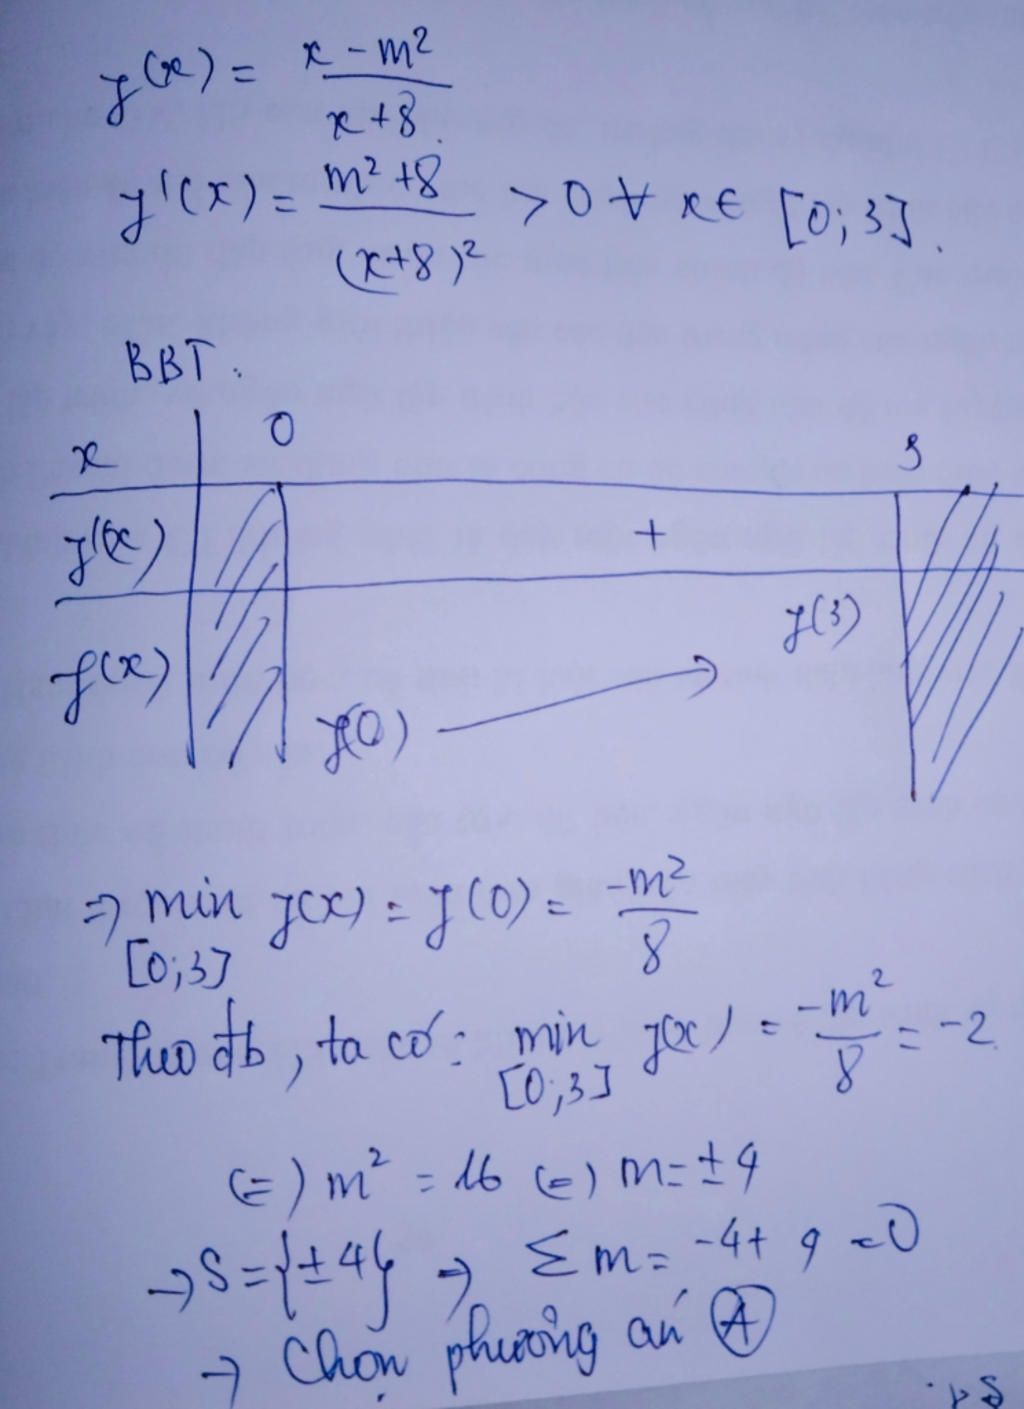 y(x) = x - m² / x+8
y'(x) = m² + 8 / (x+8)² > 0 ∀ x∈ [0; 3].
BBT:
x 0 3
y'(x) +
f(x) y(0) y(3)
⇒ min y(x) = y(0) = -m² / 8
[0;3]
Theo đb, ta có: min y(x) = -m² / 8 = -2
[0;3]
(=) m² = 16 (=) m = ±4
→ S = {±4} ⇒ Σ m = -4 + 4 = 0
→ Chọn phương án A